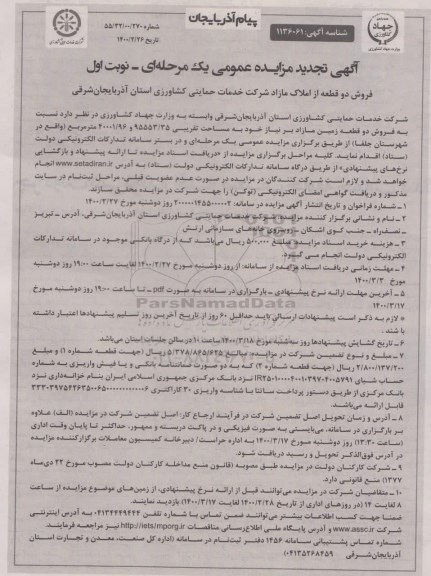 پیام آذربایجان
شماره ۵۵/۳۲/۰۰/۲۷۰
تاریخ ۱۴۰۰/۲/۲۶
شناسه آگهی: ۱۱۳۶۰۶۱
آگهی تجدید مزایده عمومی یک مرحله‌ای - نوبت اول
فروش دو قطعه از املاک مازاد شرکت خدمات حمایتی کشاورزی استان آذربایجان‌شرقی
شرکت خدمات حمایتی کشاورزی استان آذربایجان‌شرقی وابسته به وزارت جهاد کشاورزی در نظر دارد نسبت
به فروش دو قطعه زمین مازاد بر نیاز خود به مساحت تقریبی ۹۵۵۵۳/۳۵ و ۴۰۰۰۱/۹۶ مترمربع (واقع در
شهرستان جلفا) از طریق برگزاری مزایده عمومی یک مرحله‌ای و در بستر سامانه تدارکات الکترونیکی دولت
(ستاد) اقدام نماید. کلیه مراحل برگزاری مزایده از «دریافت اسناد مزایده تا ارائه پیشنهاد و بازگشایی
نرخ‌های پیشنهادی» از طریق درگاه سامانه تدارکات الکترونیکی دولت (ستاد) به آدرس www.setadiran.ir انجام
خواهد شد و لازم است شرکت کنندگان در مزایده در صورت عدم عضویت قبلی، مراحل ثبت‌نام در سایت
مذکور و دریافت گواهی امضای الکترونیکی (توکن) را جهت شرکت در مزایده محقق سازند.
۱ـ شماره فراخوان و تاریخ انتشار آگهی مزایده در سامانه: روز دوشنبه مورخ ۱۴۰۰/۲/۲۷
۲ـ نام و نشانی برگزار کننده مزایده: شرکت خدمات حمایتی کشاورزی استان آذربایجان‌شرقی، آدرس ـ تبریز
ـ نصف‌راه ـ جنب کوی اشکان ـ روبروی خانه‌های سازمانی ارتش
۳ـ هزینه خرید اسناد مزایده: مبلغ ۵۰۰,۰۰۰ ریال می‌باشد که از درگاه بانکی موجود در سامانه تدارکات
الکترونیکی دولت انجام می گیرد.
۴ـ مهلت زمانی دریافت اسناد مزایده از سامانه: از روز دوشنبه مورخ ۱۴۰۰/۲/۲۷ لغایت ساعت ۱۹:۰۰ روز دوشنبه
مورخ ۱۴۰۰/۳/۳
۵ـ آخرین مهلت ارائه نرخ پیشنهادی ـ بارگزاری در سامانه به صورت pdf ـ تا ساعت ۱۹:۰۰ روز دوشنبه مورخ
۱۴۰۰/۳/۱۷
* لازم به ذکر است پیشنهادات ارسالی باید حداقل ۶۰ روز از تاریخ آخرین روز تسلیم پیشنهادها اعتبار داشته
باشند.
۶ـ تاریخ گشایش پیشنهادها روز سه‌شنبه مورخ ۱۴۰۰/۳/۱۸ ساعت ۱۰ در سالن جلسات استان می‌باشد.
۷ـ مبلغ و نوع تضمین شرکت در مزایده: مبالغ ۵/۳۷۸/۸۶۵/۶۲۵ ریال (جهت قطعه شماره ۱) و مبلغ
۲/۸۰۰/۱۳۷/۲۰۰ ریال (جهت قطعه شماره ۲) که به دو صورت ضمانتنامه بانکی و یا فیش واریزی به شماره
حساب شبای نزد بانک مرکزی جمهوری اسلامی ایران بنام خزانه‌داری نزد
بانک مرکزی از طریق دستور پرداخت ساتنا با شناسه واریزی ۳۰ کاراکتری
قابل ارائه می‌باشد.
۸ـ آدرس و زمان تحویل اصل تضمین شرکت در فرآیند ارجاع کار: اصل تضمین شرکت در مزایده (الف) علاوه
بر بارگزاری در سامانه، می‌بایستی به صورت فیزیکی و در پاکت دربسته و ممهور، حداکثر تا پایان وقت اداری
(ساعت ۱۳:۳۰) روز دوشنبه مورخ ۱۴۰۰/۳/۱۷ به اداره حراست/ دبیرخانه کمیسیون معاملات برگزارکننده مزایده
در آدرس فوق‌الذکر تحویل و رسید دریافت شود.
۹ـ شرکت کارکنان دولت در مزایده طبق مصوبه (قانون منع مداخله کارکنان دولت مصوب مورخ ۲۲ دی‌ماه
۱۳۳۷) منع قانونی دارد.
۱۰ـ متقاضیان شرکت در مزایده می‌توانند قبل از ارائه نرخ پیشنهادی، از زمین‌های موضوع مزایده از ساعت
۸ لغایت ۱۴ (در روزهای اداری از تاریخ ۱۴۰۰/۲/۲۸ لغایت ۱۴۰۰/۳/۱۷) بازدید نمایند.
ضمنا جهت کسب اطلاعات بیشتر می‌توانند ضمن تماس با شماره تلفن ۰۴۱۳۴۴۴۹۴۴۴ به آدرس اینترنتی
شرکت www.assc.ir و آدرس پایگاه ملی اطلاع‌رسانی مناقصات http://iets/mporg.ir نیز مراجعه فرمایند.
شماره تماس پشتیبانی سامانه ۱۴۵۶ دفتر ثبت‌نام در سامانه (اداره کل صنعت، معدن و تجارت استان
آذربایجان‌شرقی ۰۴۱۳۵۲۶۸۴۵۹)